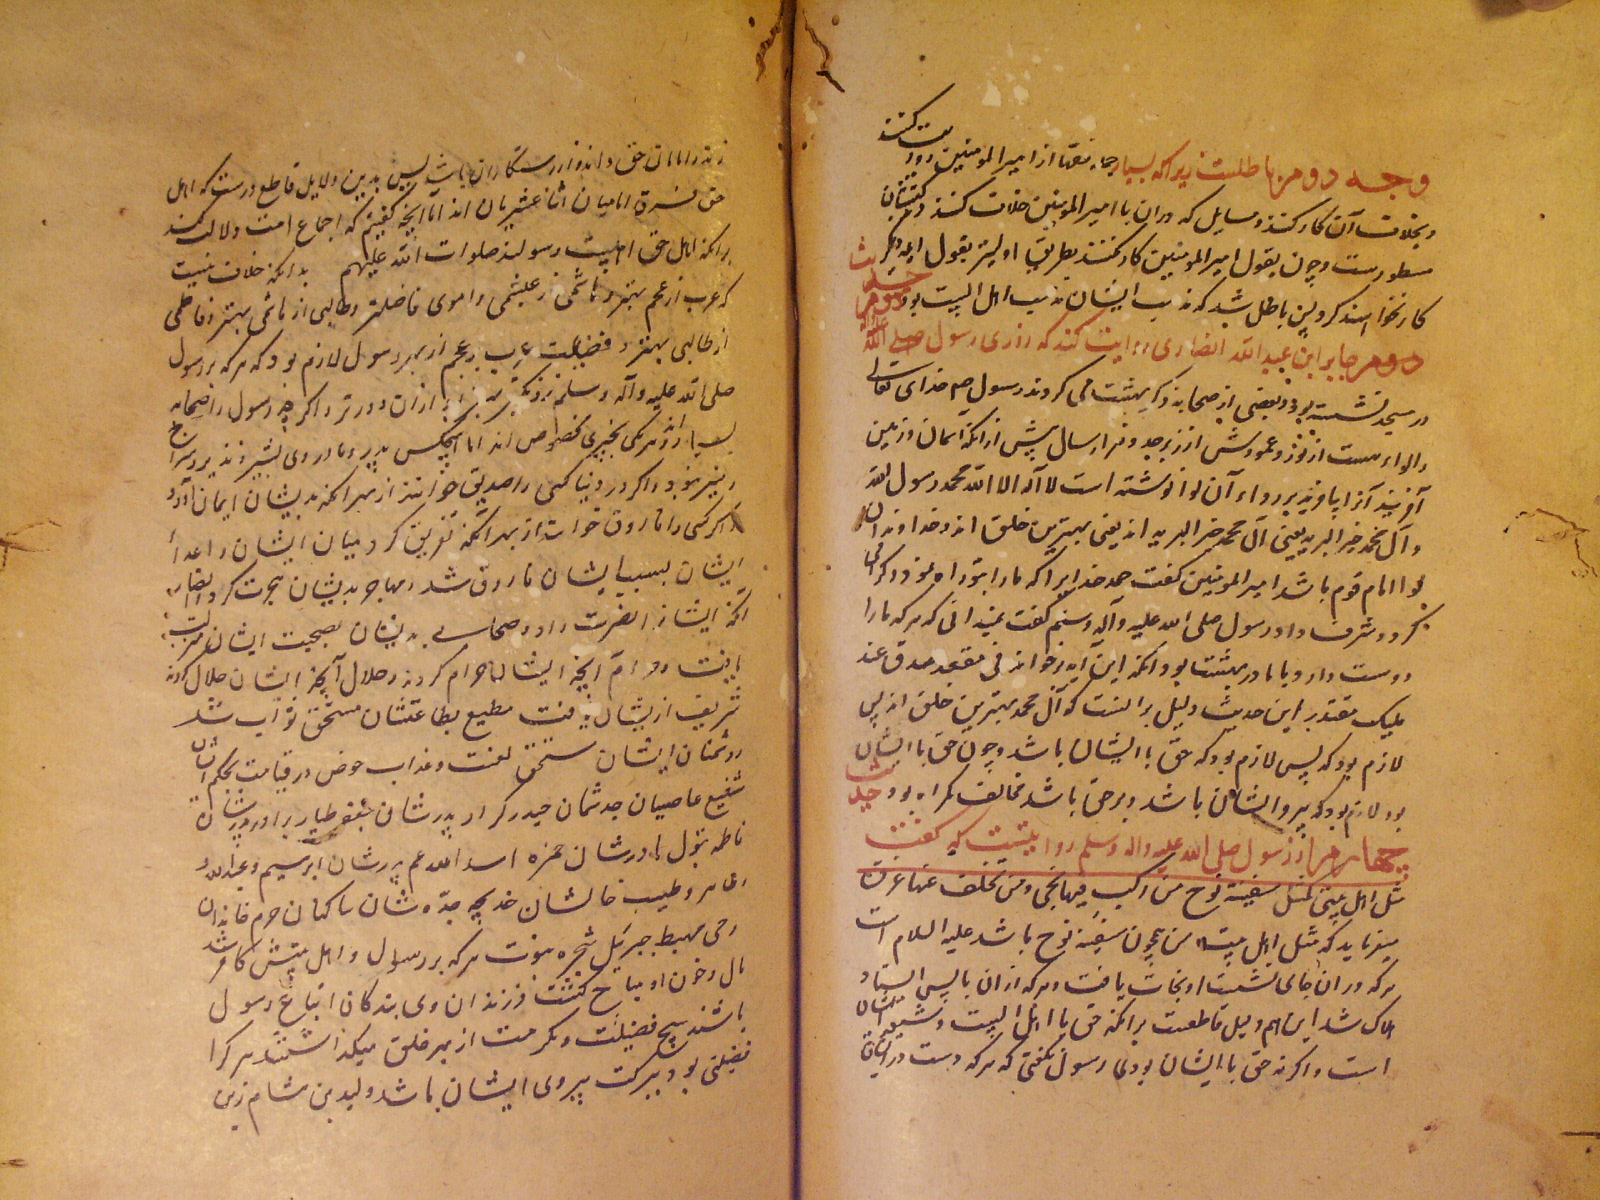 وجه دومر باطلست زیرا که بسیار فقها از امیرالمومنین روایت کنند
و بخلاف آن کار کنند و مسایل که در ان با امیرالمومنین خلاف کنند در کتبشان
مسطورست و چون بقول امیرالمومنین کار نکنند بطریق اولیتر بقول ایمه دیگر
کار نخواهند کرد پس باطل شد که مذهب ایشان مذهب اهل البیت بود حدیث
دومر جابر ابن عبد الله انصاری روایت کند که روزی رسول صلی الله علیه واله
در مسجد نشسته بود و بعضی از صحابه ذکر بهشت می کردند رسول ص م خدای تعالی
را لواء هست از نور و عمودش از زبرجد و هزار سال پیش از انکه آسمان و زمین
آفریند آنرا بیافرید بر رداء آن لوا نوشته است لا اله الا الله محمد رسول الله
و آل محمد خیر البریه یعنی آل محمد خیر البریه اند یعنی بهترین خلق اند و خداوند آن
لوا امام قوم باشد امیرالمومنین گفت حمد خدایرا که ما را بتو راه نمود و گرامی
کرد و شرف داد رسول صلی الله علیه وآله وسلم گفت نمیدانی که هر که ما را
دوست دارد با ما در بهشت بود و انکه این آیه برخواند فی مقعد صدق عند
ملیک مقتدر این حدیث دلیل بر انست که آل محمد بهترین خلق اند پس
لازم بود که پس لازم بود که حق با ایشان باشد و چون حق با ایشان
بود لازم بود که پیرو ایشان باشد و بر حق باشد مخالف گمراه بود حدیث
چهارمر از رسول صلی الله علیه واله وسلم روایتست که گفت
مثل اهل بیتی کمثل سفینة نوح من رکب فیها نجی و من تخلف عنها غرق
میفرماید که مثل اهل بیت من همچون سفینه نوح باشد علیه السلام است
هر که در ان جای نشست او نجات یافت و هر که از ان باپس استاد
هلاک شد این هم دلیل قاطعست بر انکه حق با اهل البیت و شیعه ایشان
است و اگر نه حق با ایشان بودی رسول نگفتی که هر که دست در ایشان
زند را امان حق داند و از رستگاران باشد پس بدین دلایل قاطع درست که اهل
حق فرقه امامیان اثنا عشریان اند اما آنچه گفتیم که اجماع امت دلالت کند
بر انکه اهل حق اهلبیت رسولند صلوات الله علیهم بدانکه خلاف نیست
که عرب از عجم بهتر و هاشمی از عبشمی و اموی فاضلتر و طالبی از هاشمی بهتر و فاطمی
از طالبی بهتر و فضیلت عرب بر عجم از بهر رسول لازم بود که هر که بر رسول
صلی الله علیه وآله وسلم نزدیکتر بهتر از ان دورتر و اگر چه رسول را صحابه
بسیارند و هر یکی بچیزی مخصوص اند اما هیچکس بپدر و مادر وی
و نیز نبود و اگر در دنیا کسی را صدیق خوانند از بهر انکه بدیشان ایمان آورد
و اگر کسی را فاروق خواست از بهر انکه تفریق کرد میان ایشان و اعداء
ایشان بسبب ایشان فاروق شد و مهاجر بدیشان هجرت کرد و انصار
انکه ایشانرا نصرت داد و صحابی بدیشان بصحبت ایشان مرتبت
یافت و حرام آنچه ایشان حرام کردند و حلال آنچه ایشان حلال کردند
شریف از یشان یافت مطیع بطاعتشان مستحق ثواب شد
دشمنان ایشان مستحق لعنت و عذاب حوض در قیامت بحکم ایشان
شفیع عاصیان جدشان حیدر کرار پدرشان جعفر طیار برادر پدرشان
فاطمه بتول مادرشان حمزه اسد الله عم پدرشان ابرهیم و عبدالله
و طاهر و طیب خالشان خدیجه جدّه شان ساکنان حرم خاندان
وحی مهبط جبریل شجره نبوت هر که بر رسول و اهل بیتش کافر شد
مال و خون او مباح گشت فرزندان وی بندکان اتباع رسول
باشند هیچ فضیلت و مکرمت از بهر خلق میکذاشتند هر کرا
فضیلتی بود ببرکت پیروی ایشان باشد ولید بن هشام زین